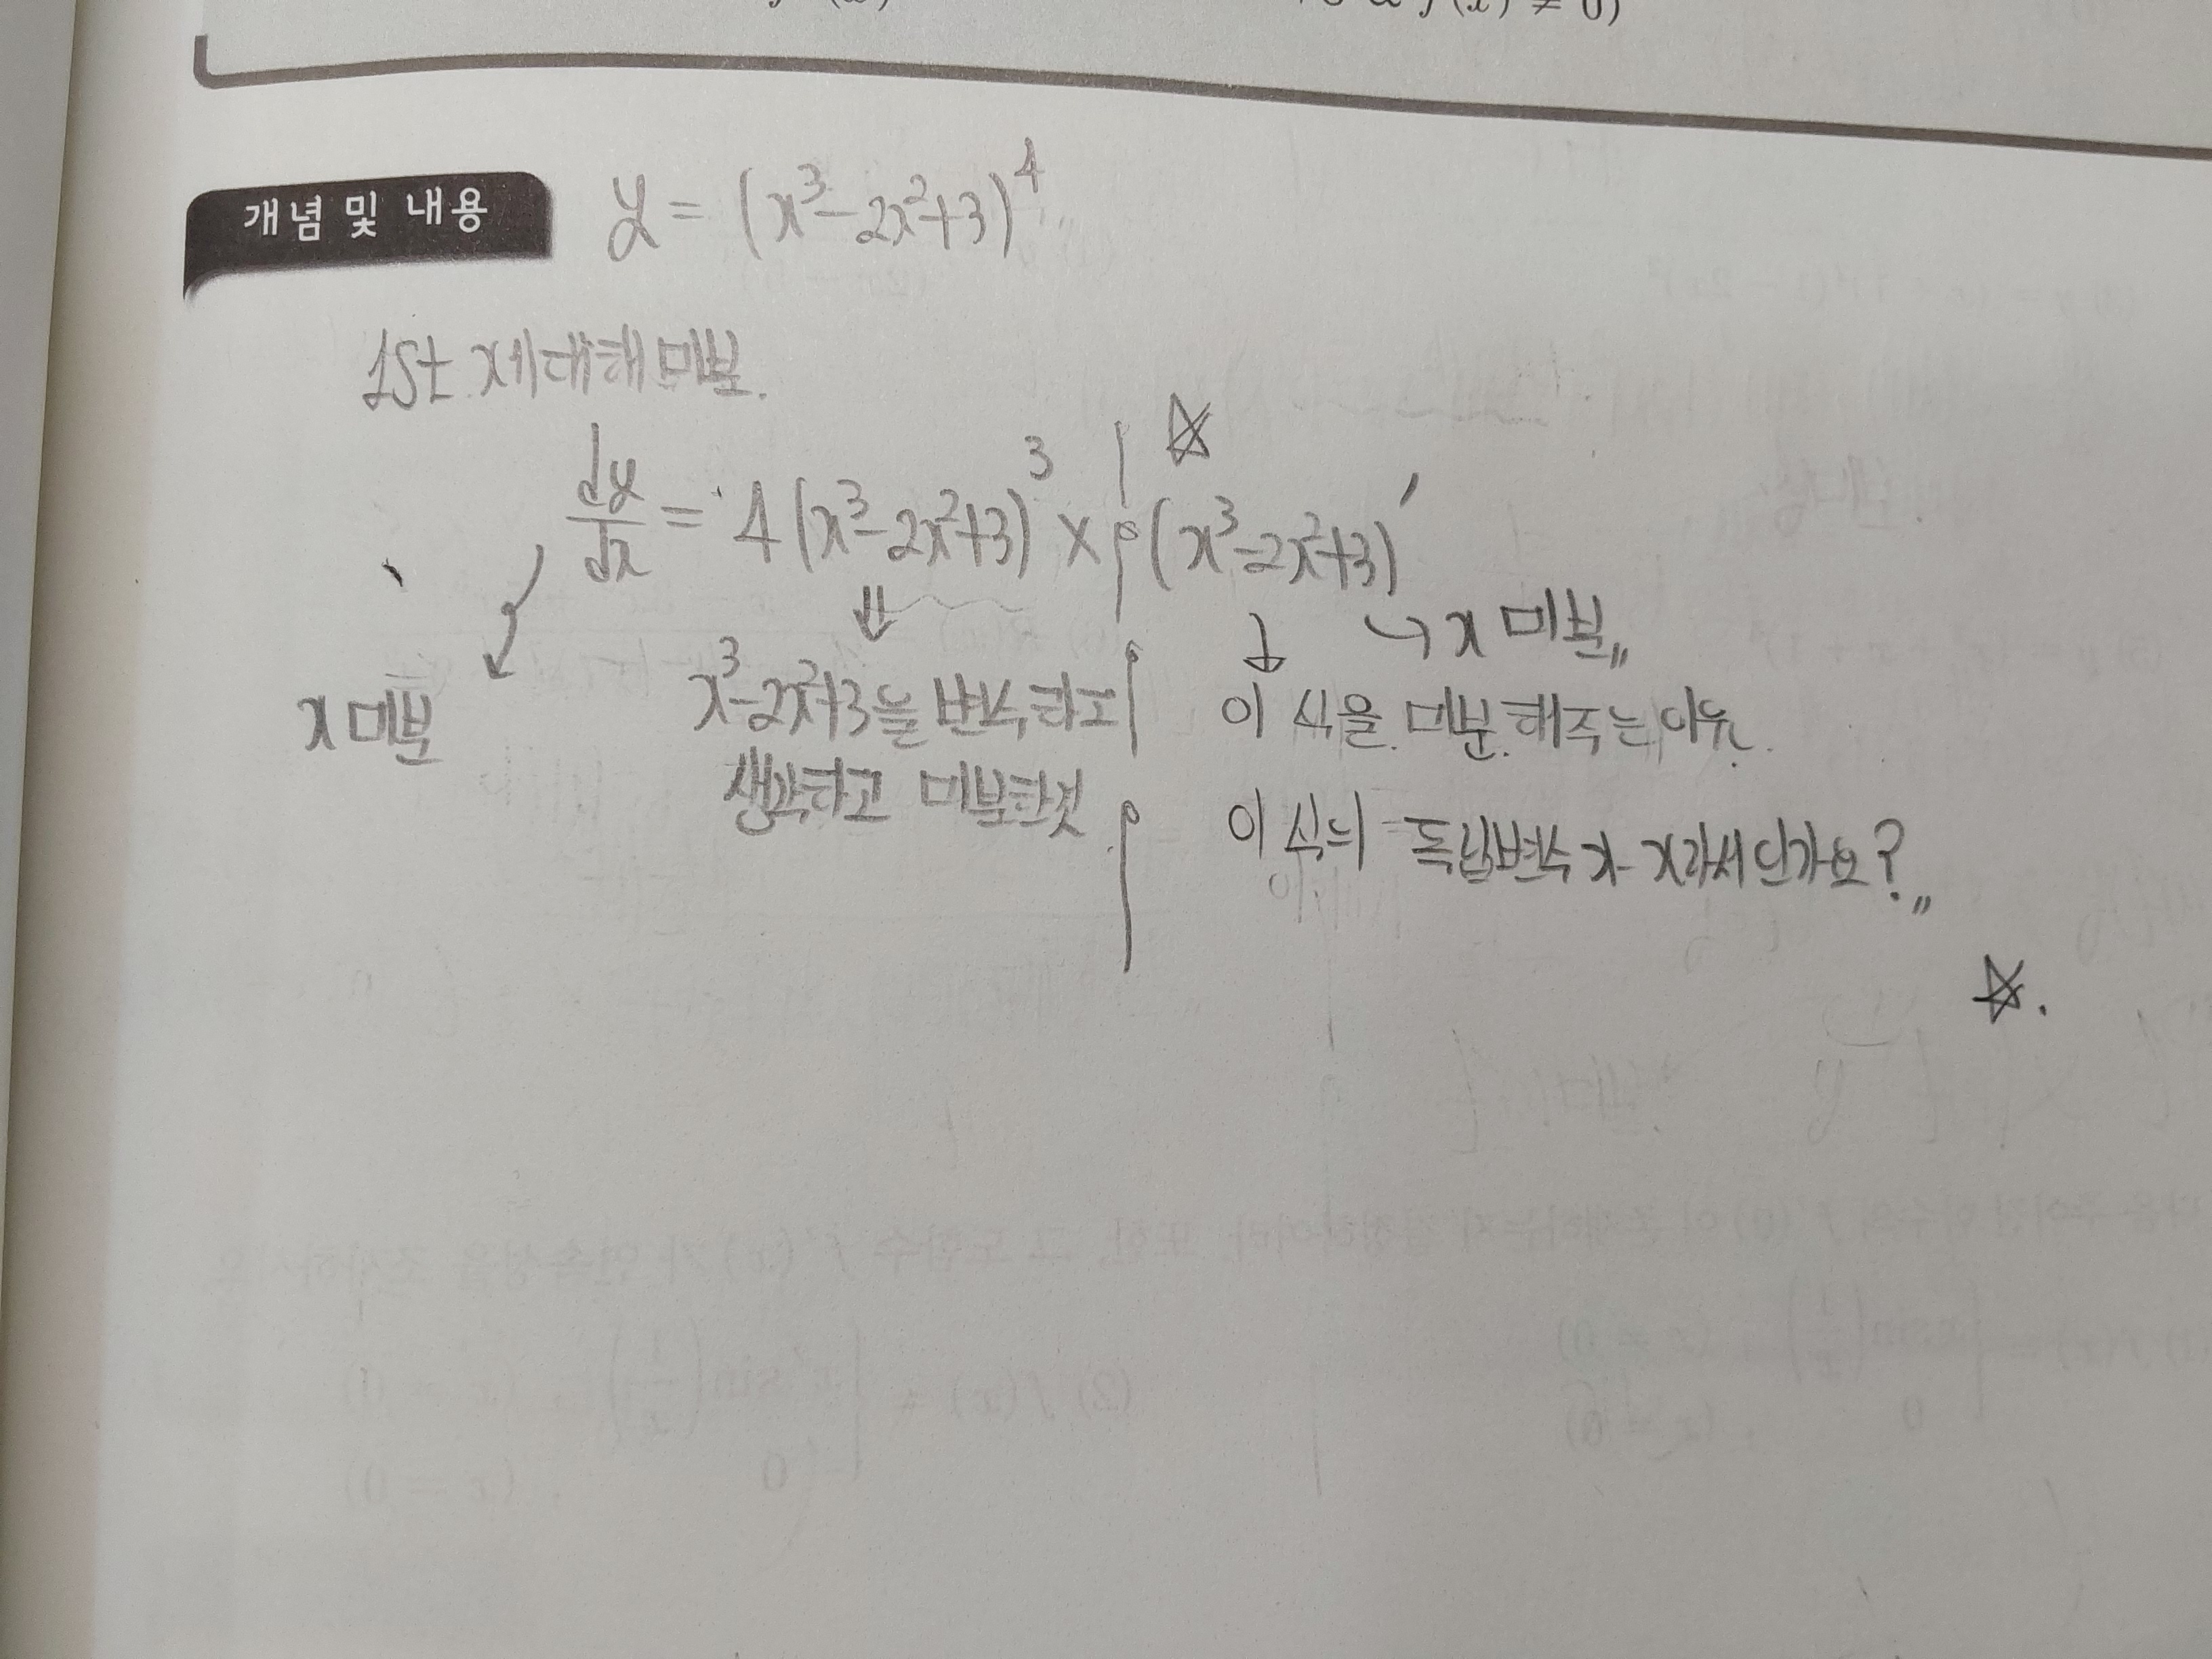 개념 및 내용 y = (x³-2x²+3)⁴
1st x에 대해 미분.
dy/dx = 4(x³-2x²+3)³ × (x³-2x²+3)′
x 미분
x 미분
x³-2x²+3을 변수라고
생각하고 미분한것
이 식을 미분해주는 이유.
이 식의 독립변수가 x라서 인가요?